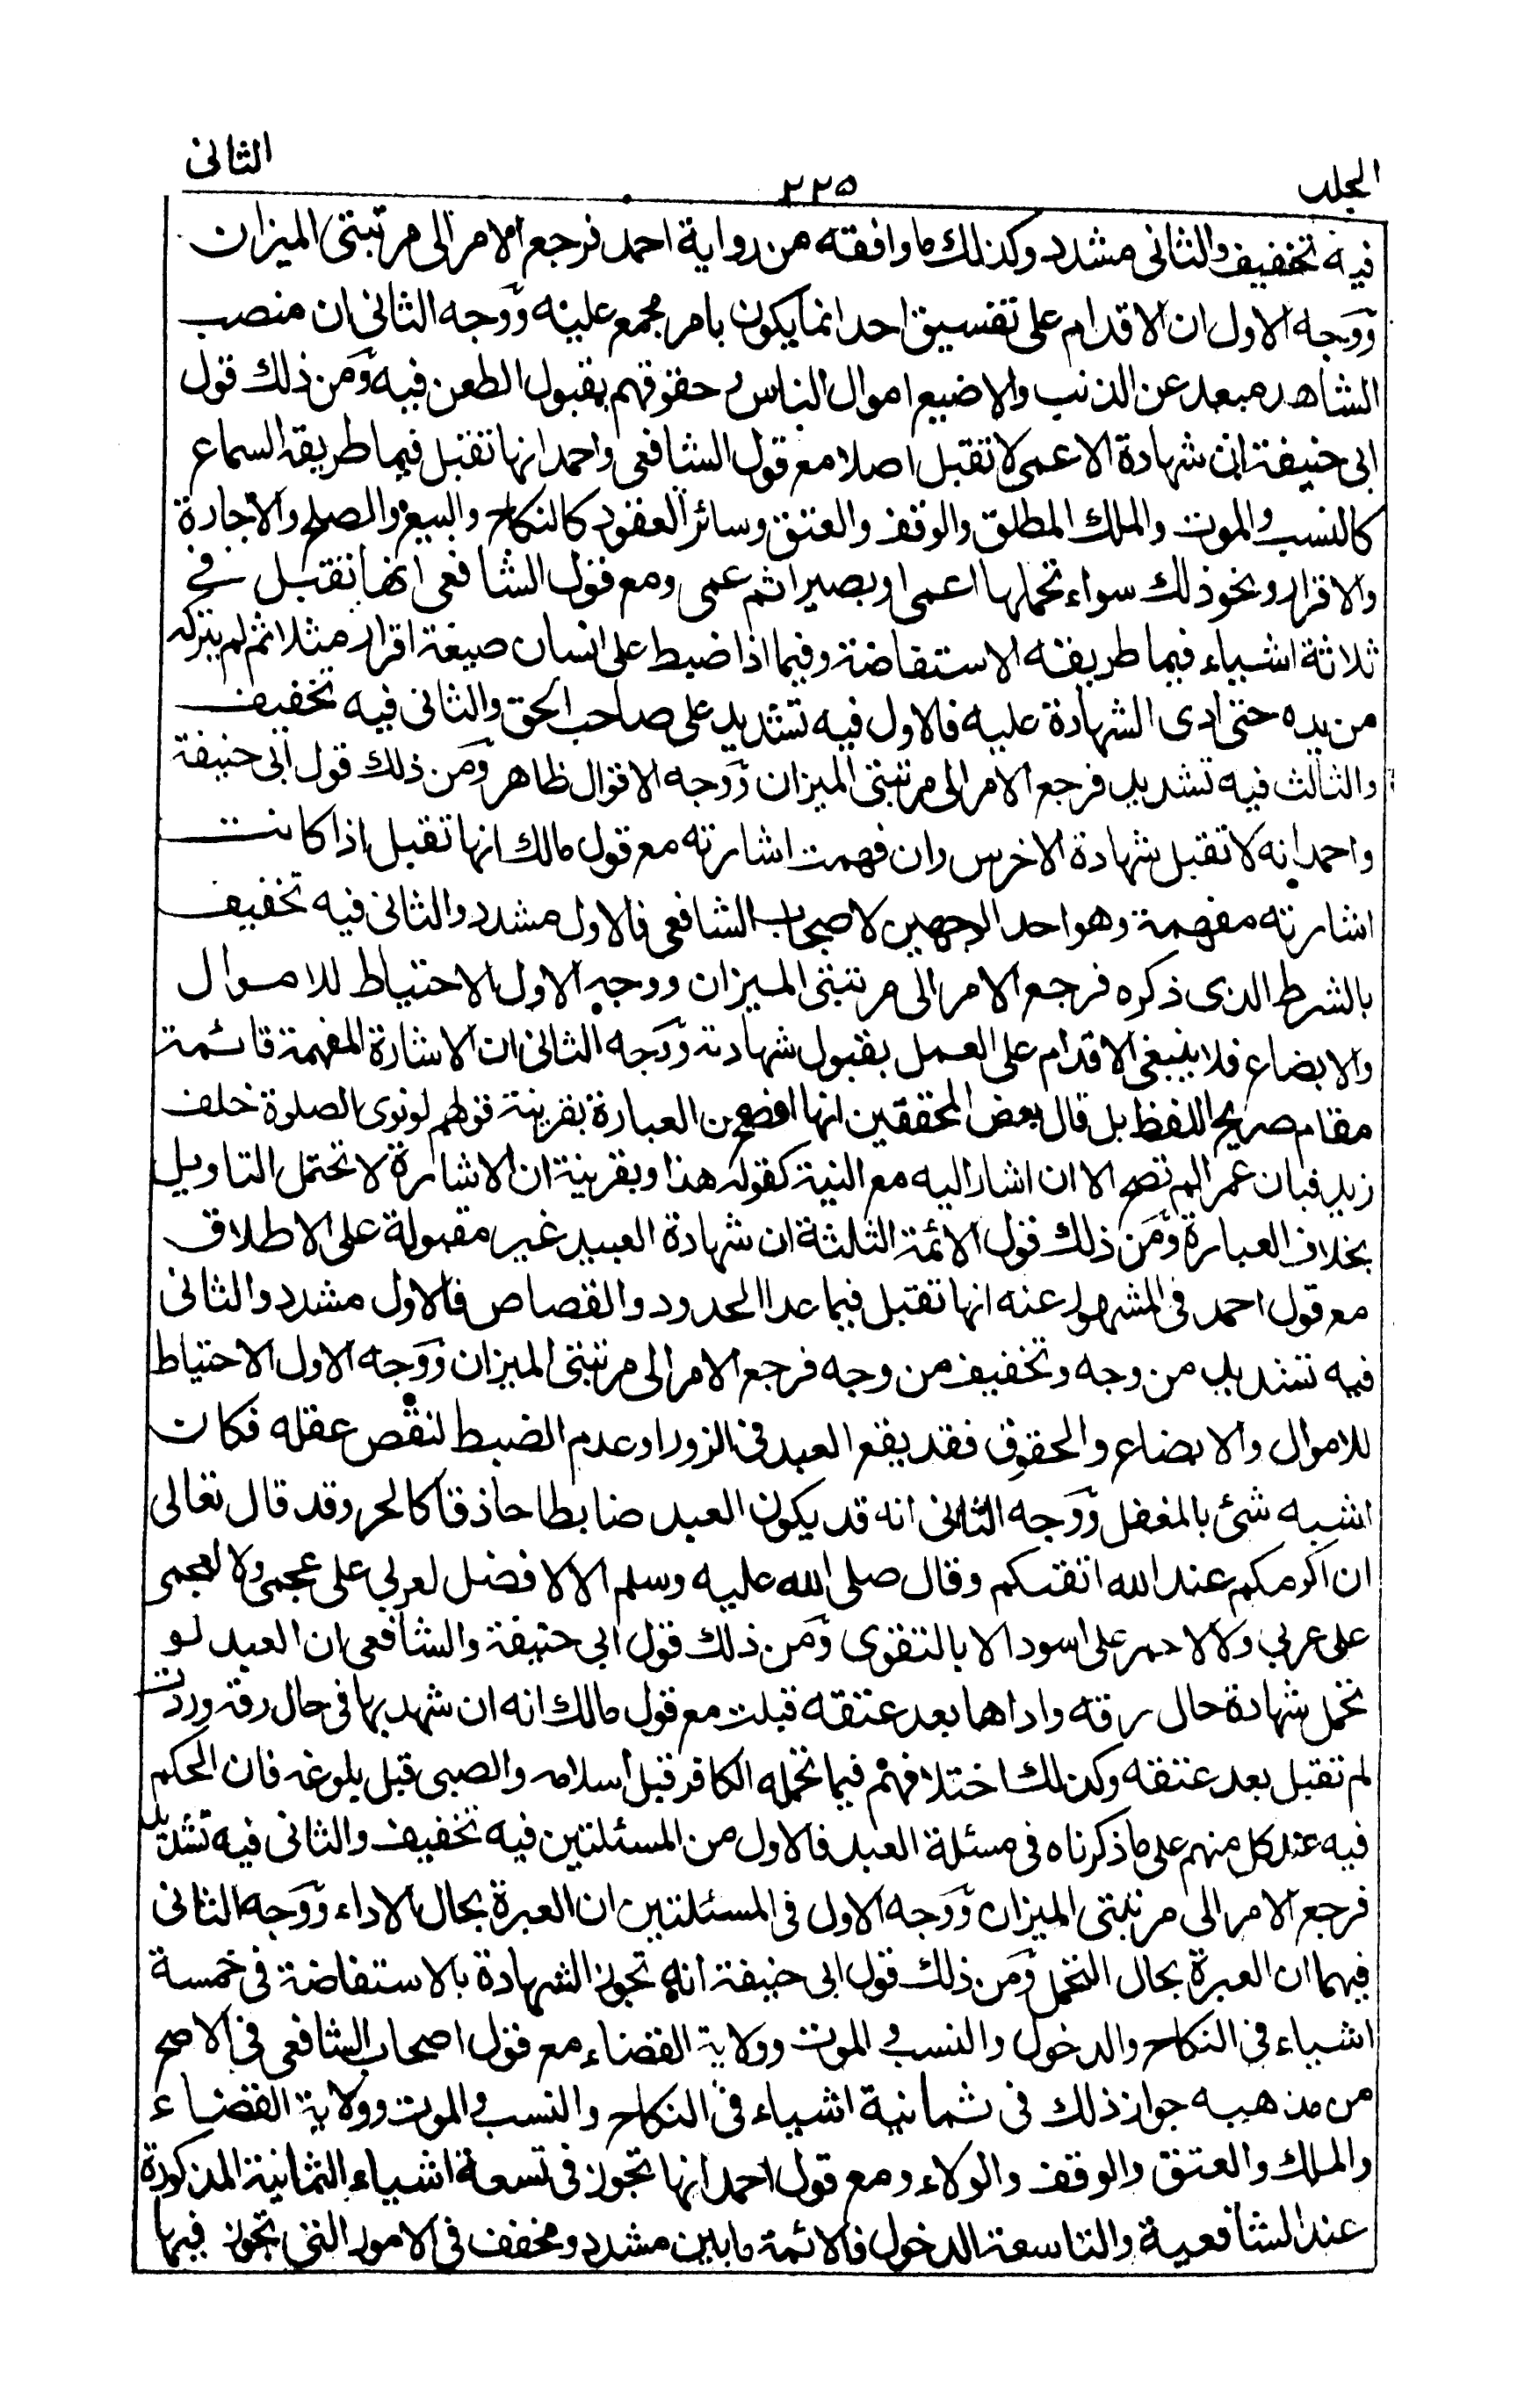 الجلد
٢٢٥
الثانى
فيه تخفيف والثانى مشدد وكذلك ما وافقه من رواية احمد فرجع الامر الى مرتبتى الميزان
ووجه الاول ان الاقدام على تفسيق احد انما يكون بامر مجمع عليه ووجه الثانى ان منصب
الشاهد مبعد عن الذنب والا ضيع اموال الناس وحقوقهم بقبول الطعن فيه ومن ذلك قول
ابى حنيفة ان شهادة الاعمى لا تقبل اصلا مع قول الشافعى واحمد انها تقبل فيما طريقه السماع
كالنسب والموت والملك المطلق والوقف والعتق وسائر العقود كالنكاح والبيع والصلح والاجارة
والاقرار ونحو ذلك سواء تحملها اعمى او بصيرا ثم عمى ومع قول الشافعى انها تقبل فى
ثلاثة اشياء فيما طريقه الاستفاضة وفيما اذا ضبط على انسان صيغة اقرار مثلا ثم لم يتركه
من يده حتى ادى الشهادة عليه فالاول فيه تشديد على صاحب الحق والثانى فيه تخفيف
والثالث فيه تشديد فرجع الامر الى مرتبتى الميزان ووجه الاقوال ظاهر ومن ذلك قول ابى حنيفة
واحمد انه لا تقبل شهادة الاخرس وان فهمت اشارته مع قول مالك انها تقبل اذا كانت
اشارته مفهمة وهو احد الوجهين لاصحاب الشافعى فالاول مشدد والثانى فيه تخفيف
بالشرط الذى ذكره فرجع الامر الى مرتبتى الميزان ووجه الاول الاحتياط للاموال
والابضاع فلا ينبغى الاقدام على العمل بقبول شهادته ووجه الثانى ان الاشارة المفهمة قائمة
مقام صريح اللفظ بل قال بعض المحققين انها افصح من العبارة بقرينة قولهم لو نوى الصلوة خلف
زيد فبان عمرا لم تصح الا ان اشار اليه مع النية كقوله هذا وبقرينة ان الاشارة لا تحتمل التاويل
بخلاف العبارة ومن ذلك قول الائمة الثلثة ان شهادة العبيد غير مقبولة على الاطلاق
مع قول احمد فى المشهور عنه انها تقبل فيما عدا الحدود والقصاص فالاول مشدد والثانى
فيه تشديد من وجه وتخفيف من وجه فرجع الامر الى مرتبتى الميزان ووجه الاول الاحتياط
للاموال والابضاع والحقوق فقد يقع العبد فى الزور او عدم الضبط لنقص عقله فكان
اشبه شئ بالمغفل ووجه الثانى انه قد يكون العبد ضابطا حاذقا كالحر وقد قال تعالى
ان اكرمكم عند الله اتقىكم وقال صلى الله عليه وسلم الا لا فضل لعربى على عجمى ولا لعجمى
على عربى ولا لاحمر على اسود الا بالتقوى ومن ذلك قول ابى حنيفة والشافعى ان العبد لو
تحمل شهادة حال رقه واداها بعد عتقه قبلت مع قول مالك انه ان شهد بها فى حال رقه وردت
لم تقبل بعد عتقه وكذلك اختلافهم فيما تحمله الكافر قبل اسلامه والصبى قبل بلوغه فان الحكم
فيه عند كل منهم على ما ذكرناه فى مسئلة العبد فالاول من المسئلتين فيه تخفيف والثانى فيه تشديد
فرجع الامر الى مرتبتى الميزان ووجه الاول فى المسئلتين ان العبرة بحال الاداء ووجه الثانى
فيهما ان العبرة بحال التحمل ومن ذلك قول ابى حنيفة انه تجوز الشهادة بالاستفاضة فى خمسة
اشياء فى النكاح والدخول والنسب والموت وولاية القضاء مع قول اصحاب الشافعى فى الاصح
من مذهبه جواز ذلك فى ثمانية اشياء فى النكاح والنسب والموت وولاية القضاء
والملك والعتق والوقف والولاء ومع قول احمد انها تجوز فى تسعة اشياء الثمانية المذكورة
عند الشافعية والتاسعة الدخول فالائمة ما بين مشدد ومخفف فى الامور التى تجوز فيها